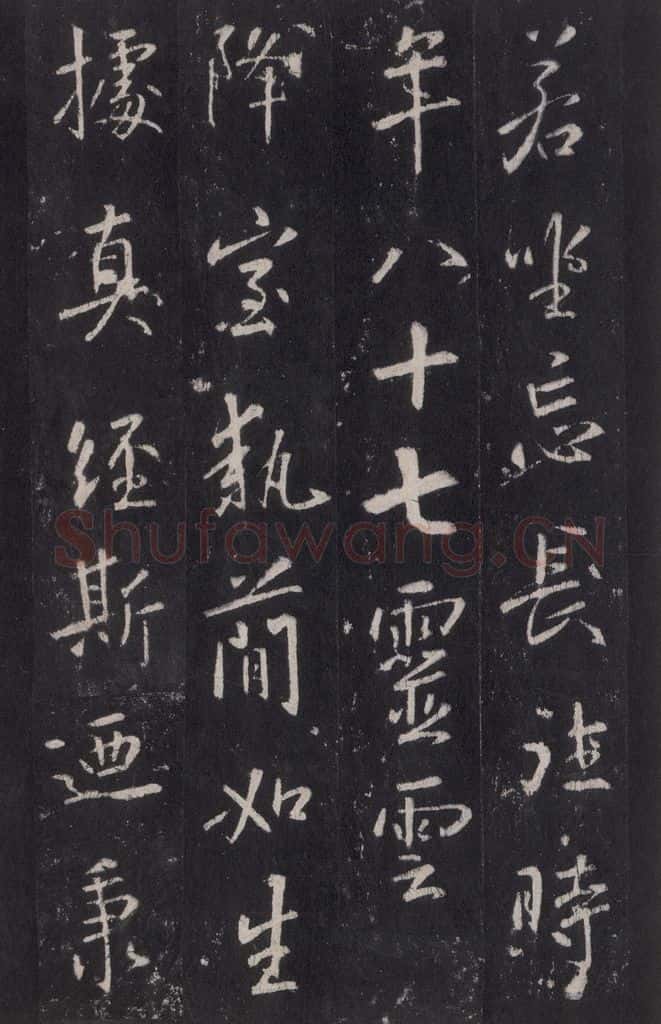 若坐忘長往時
年八十七靈雲
降室執簡如生
據真經斯迺秉
Shufawang.CN